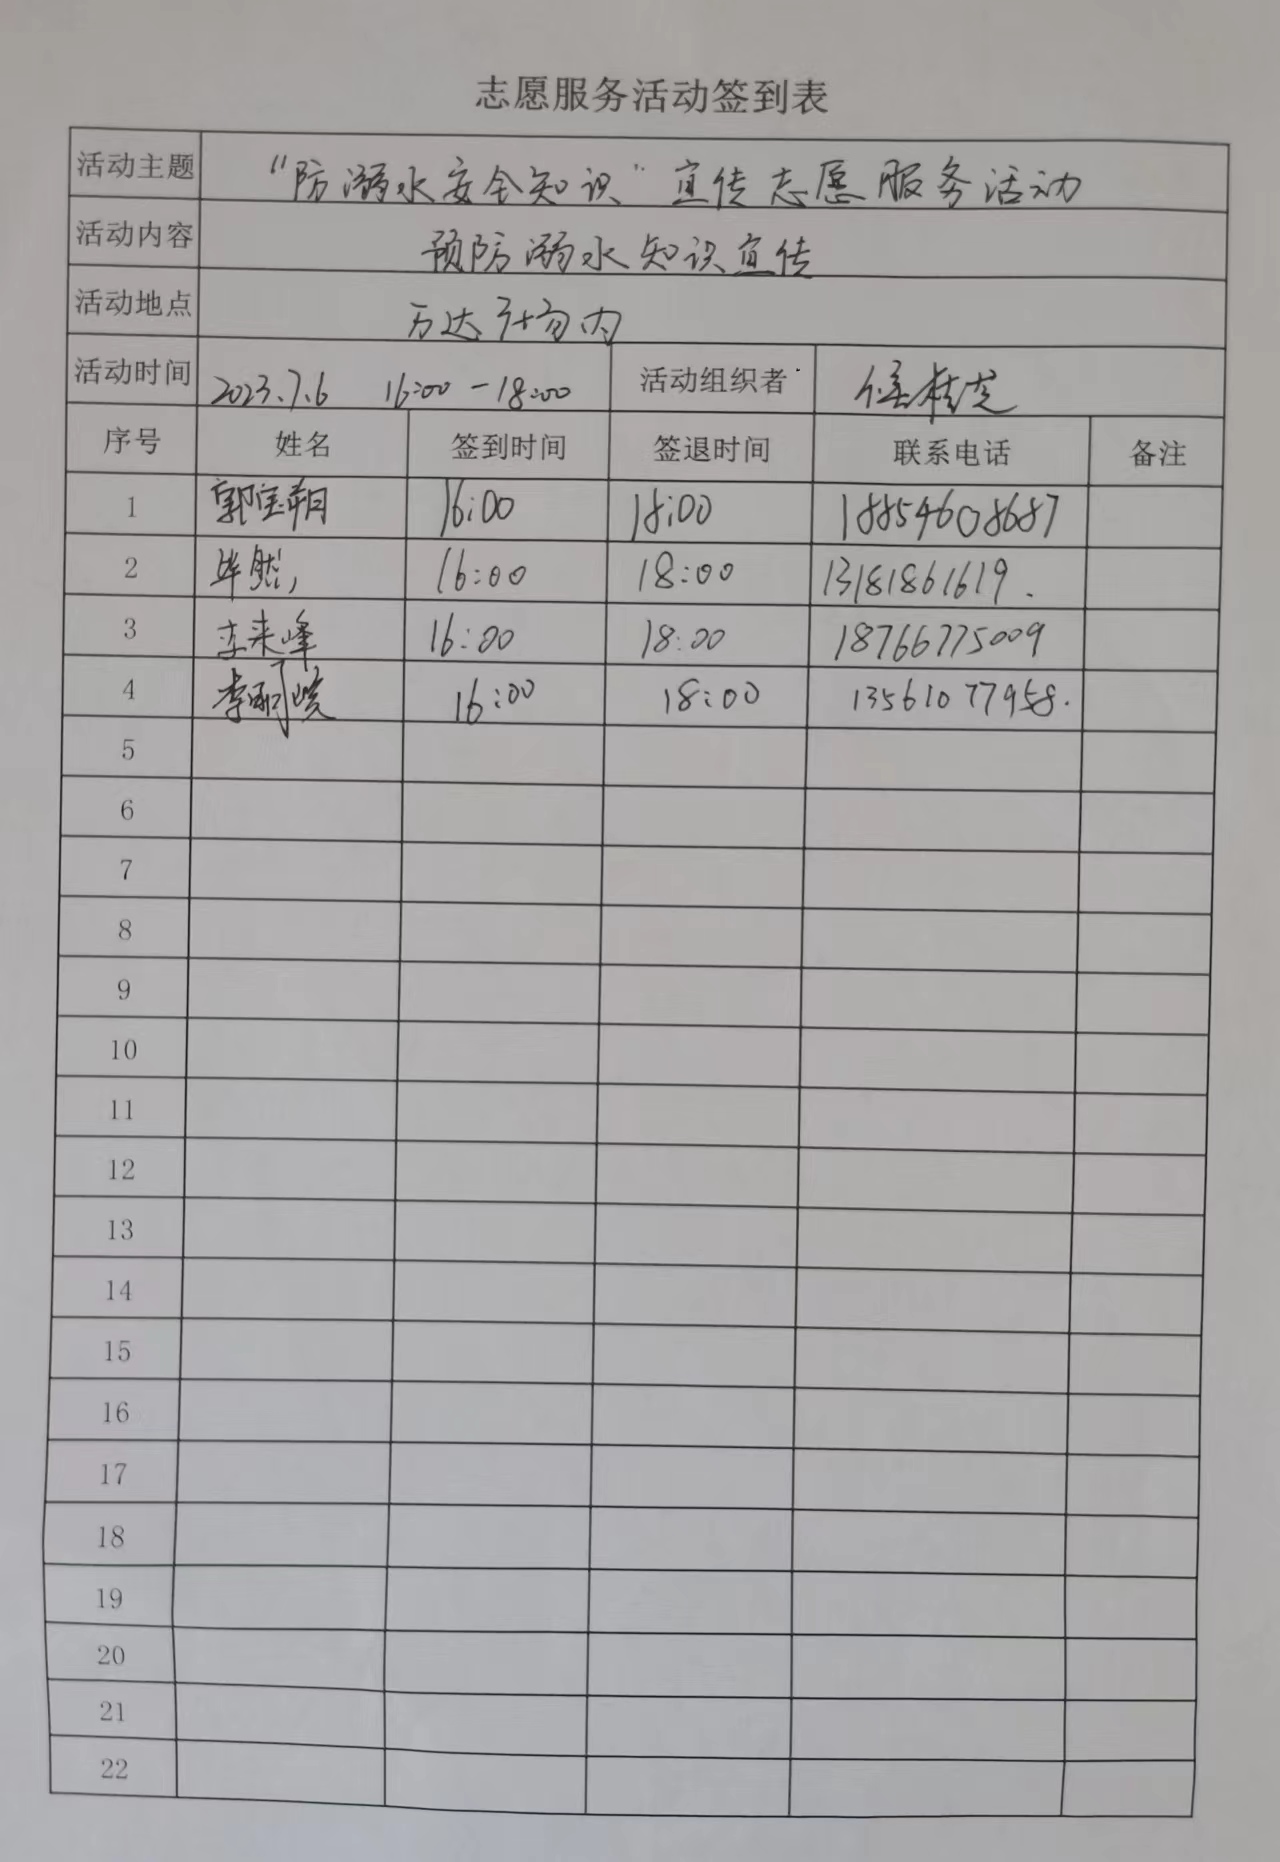 志愿服务活动签到表
活动主题 “防溺水安全知识”宣传志愿服务活动
活动内容 预防溺水知识宣传
活动地点 万达广场内
活动时间 2023.7.6 16:00-18:00 活动组织者
序号 姓名 签到时间 签退时间 联系电话 备注
1 郭宝朔 16:00 18:00 18854608687
2 毕然 16:00 18:00 13181861619.
3 李来峰 16:00 18:00 18766775009
4 李 16:00 18:00 13561077958.
5
6
7
8
9
10
11
12
13
14
15
16
17
18
19
20
21
22